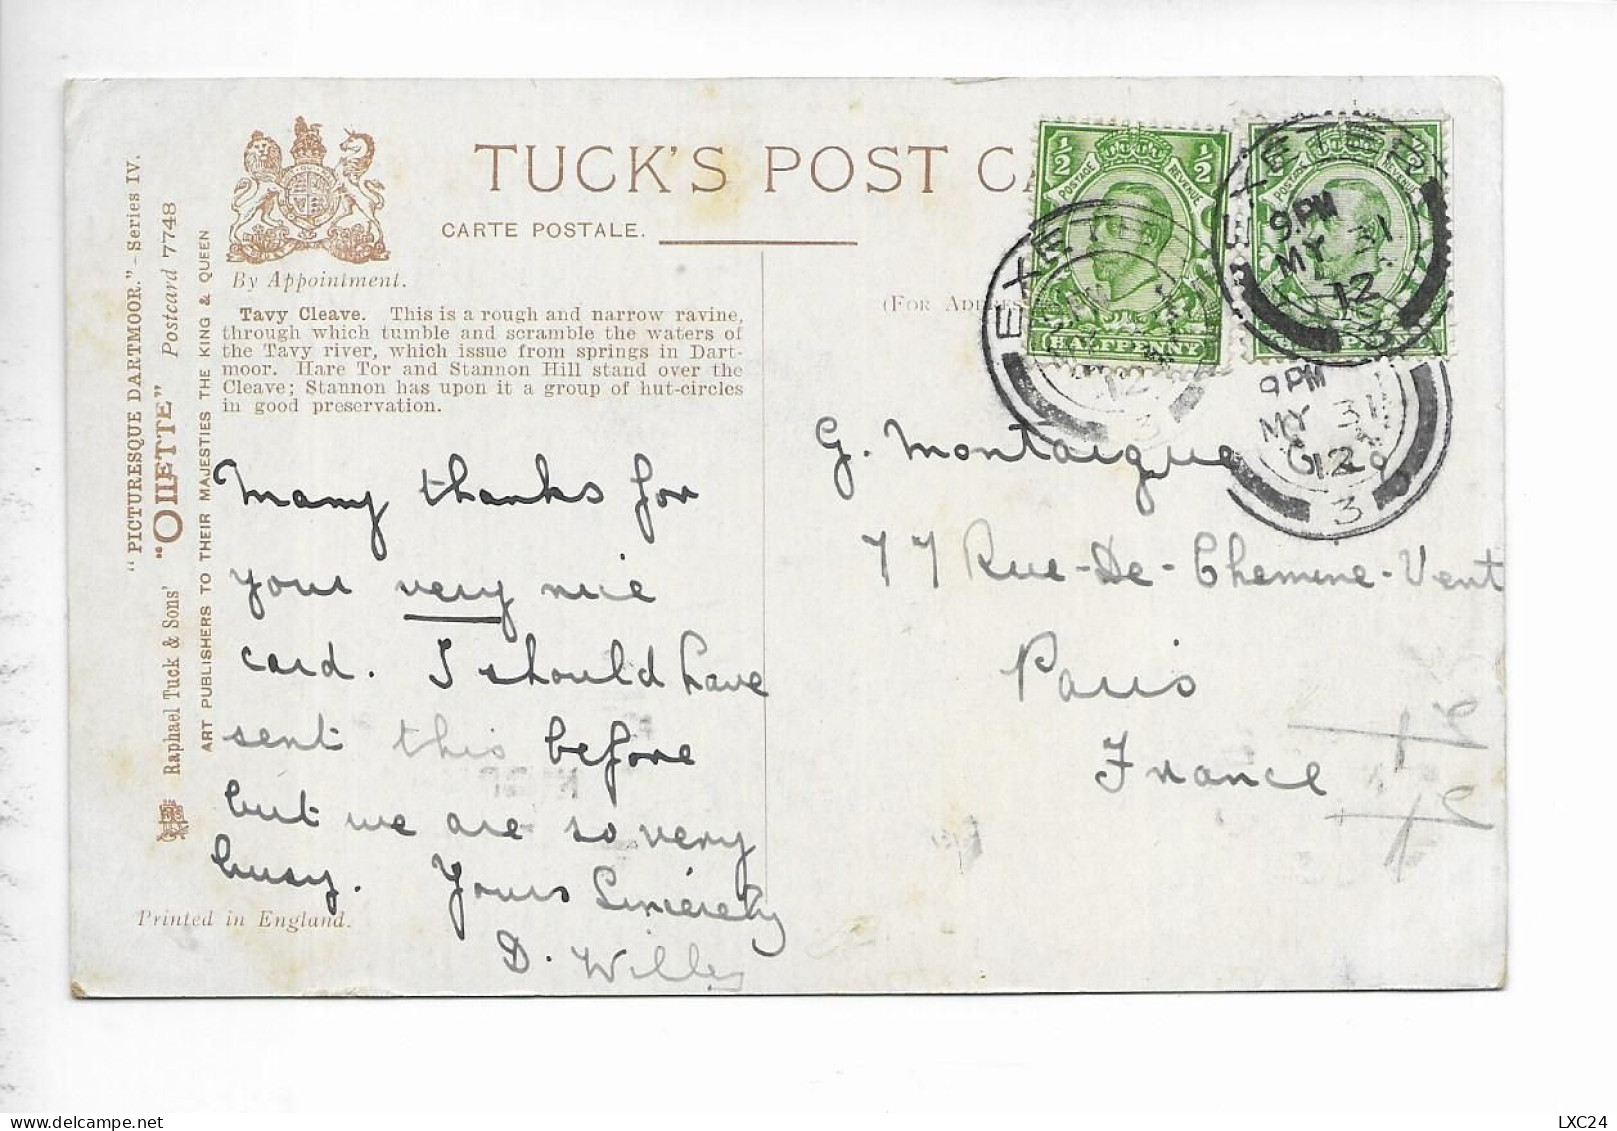 TUCK'S POST C
CARTE POSTALE.
By Appointment.
(FOR ADDRES
Tavy Cleave. This is a rough and narrow ravine,
through which tumble and scramble the waters of
the Tavy river, which issue from springs in Dart-
moor. Hare Tor and Stannon Hill stand over the
Cleave; Stannon has upon it a group of hut-circles
in good preservation.
"PICTURESQUE DARTMOOR."—Series IV.
Raphael Tuck & Sons' "OILETTE" Postcard 7748
ART PUBLISHERS TO THEIR MAJESTIES THE KING & QUEEN
Printed in England.
Many thanks for
your very nice
card. I should have
sent this before
but we are so very
busy. Yours Sincerely
D. Willey
½ ½
POSTAGE REVENUE
HALFPENNY
EXETER
12
3
EXETER
9 PM
MY 31
12
3
9 PM
MY 31
12
3
G. Montaigue
77 Rue-De-Chemine-Vent
Paris
France
LXC24